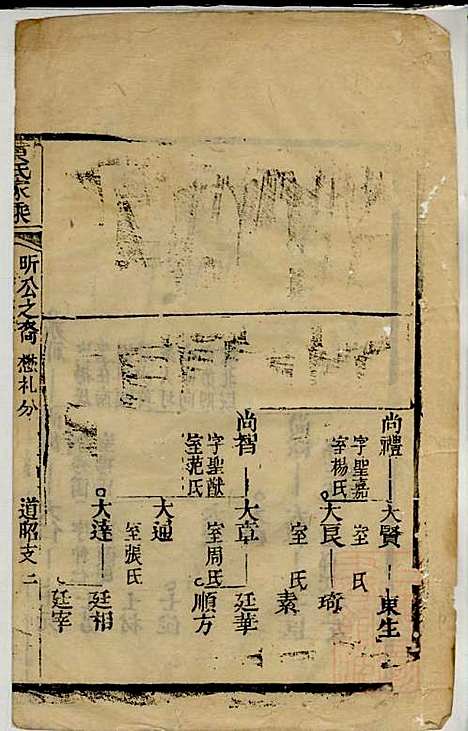 尚禮
字聖嘉
室楊氏
大賢
室 氏
東生
大良
室 氏
琦
素
尚智
字聖猷
室范氏
大章
室周氏
廷華
順方
大通
室張氏
大達
廷相
廷宰
氏家乘
昕公之裔 懋札分
道昭支 二